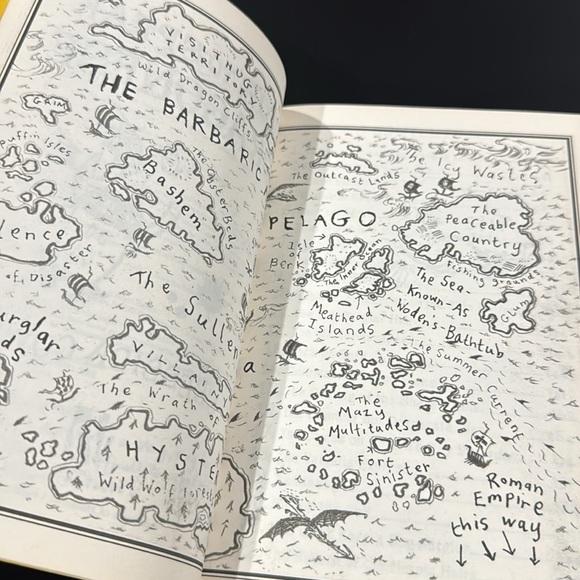 VISITHUG
TERRITORY
Wild Dragon Cliffs
THE BARBARIC
GRIM
Puffin Isles
Bashem
The Oyster Beds
lence
of Disaster
The Sullen
urglar
ds
VILLAIN
The Wrath of
HYSTE
Wild Wolf Forest
The Icy Wastes
The Outcast Lands
PELAGO
The
Peaceable
Country
Fishing grounds
Isle
of
Berk
The Inner
The Sea-
Known-As
Wodens-Bathtub
Glum
Meathead
Islands
a
The Summer Current
The
Mazy
Multitudes
Fort
Sinister
Roman
Empire
this way